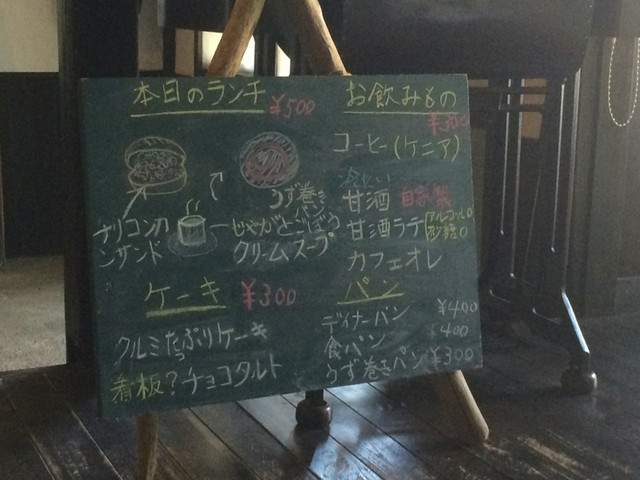 本日のランチ ¥500
うず巻き
パン
ナリコンの
ンサンド
じゃがとごぼう
クリームスープ
ケーキ ¥300
クルミたっぷりケーキ
看板?チョコタルト
お飲みもの
¥300
コーヒー(ケニア)
冷たい
甘酒 自家製
甘酒ラテ アルコール0
砂糖0
カフェオレ
パン
ディナーパン ¥400
食パン ¥400
うず巻きパン ¥300